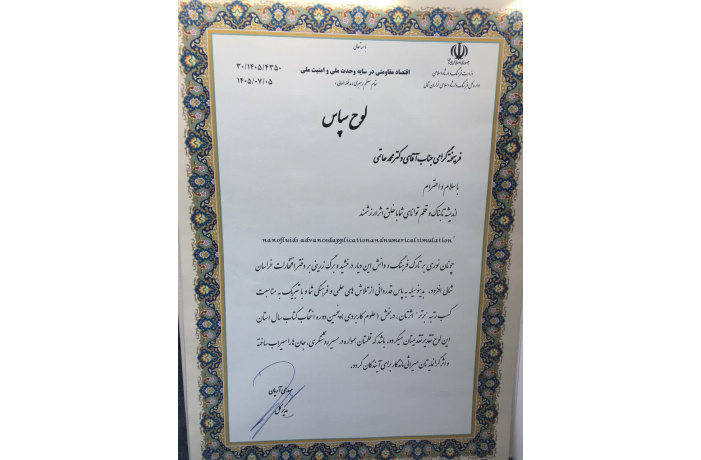 باسمه تعالی
جمهوری اسلامی ایران
وزارت فرهنگ و ارشاد اسلامی
اداره کل فرهنگ و ارشاد اسلامی خراسان شمالی
اقتصاد مقاومتی در سایه وحدت ملی و امنیت ملی
۳۰/۱۴۰۵/۴۳۵۰
۱۴۰۵/۰۷/۰۵
لوح سپاس
فرهیخته گرامی جناب آقای دکتر محمد حاتمی
با سلام و احترام
اندیشه تابناک و قلم توانای شما با خلق اثر ارزشمند
"nanofluids advancedapplicationandnumericalsimulation"
چونان نوری بر تارک فرهنگ و دانش این دیار درخشید و برگ زرینی بر دفتر افتخارات خراسان
شمالی افزود. بدینوسیله به پاس قدردانی از تلاش های علمی و فرهنگی شما و با تبریک به مناسبت
کسب رتبه برتر اثرتان، در بخش (علوم کاربردی) پنجمین دوره انتخاب کتاب سال استان
این لوح تقدیر تقدیمتان میگردد. باشد که قلمتان همواره در مسیر روشنگری، جان ها را سیراب ساخته
و اثر گرانمایه تان میراثی ماندگار برای آیندگان گردد.
مدیر کل